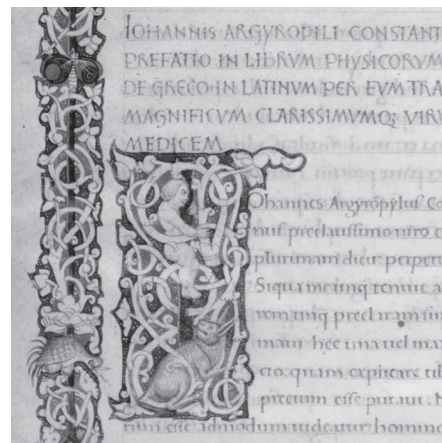 IOHANNIS ARGYROPILI CONSTANT
PREFATIO IN LIBRVM PHYSICORVM
DE GRECO IN LATINVM PER EVM TRA
MAGNIFICVM CLARISSIMVMQ; VIRV
MEDICEM
Iohannes Argyropylus Co
nus preclarissimo uiro c
plurimam dicit perpet
Siquamcunq tenuit a
rerumq
matur hec una uel ma
cto quam explicare
precium esse putaui. N
rum esse admodum uideatur homin